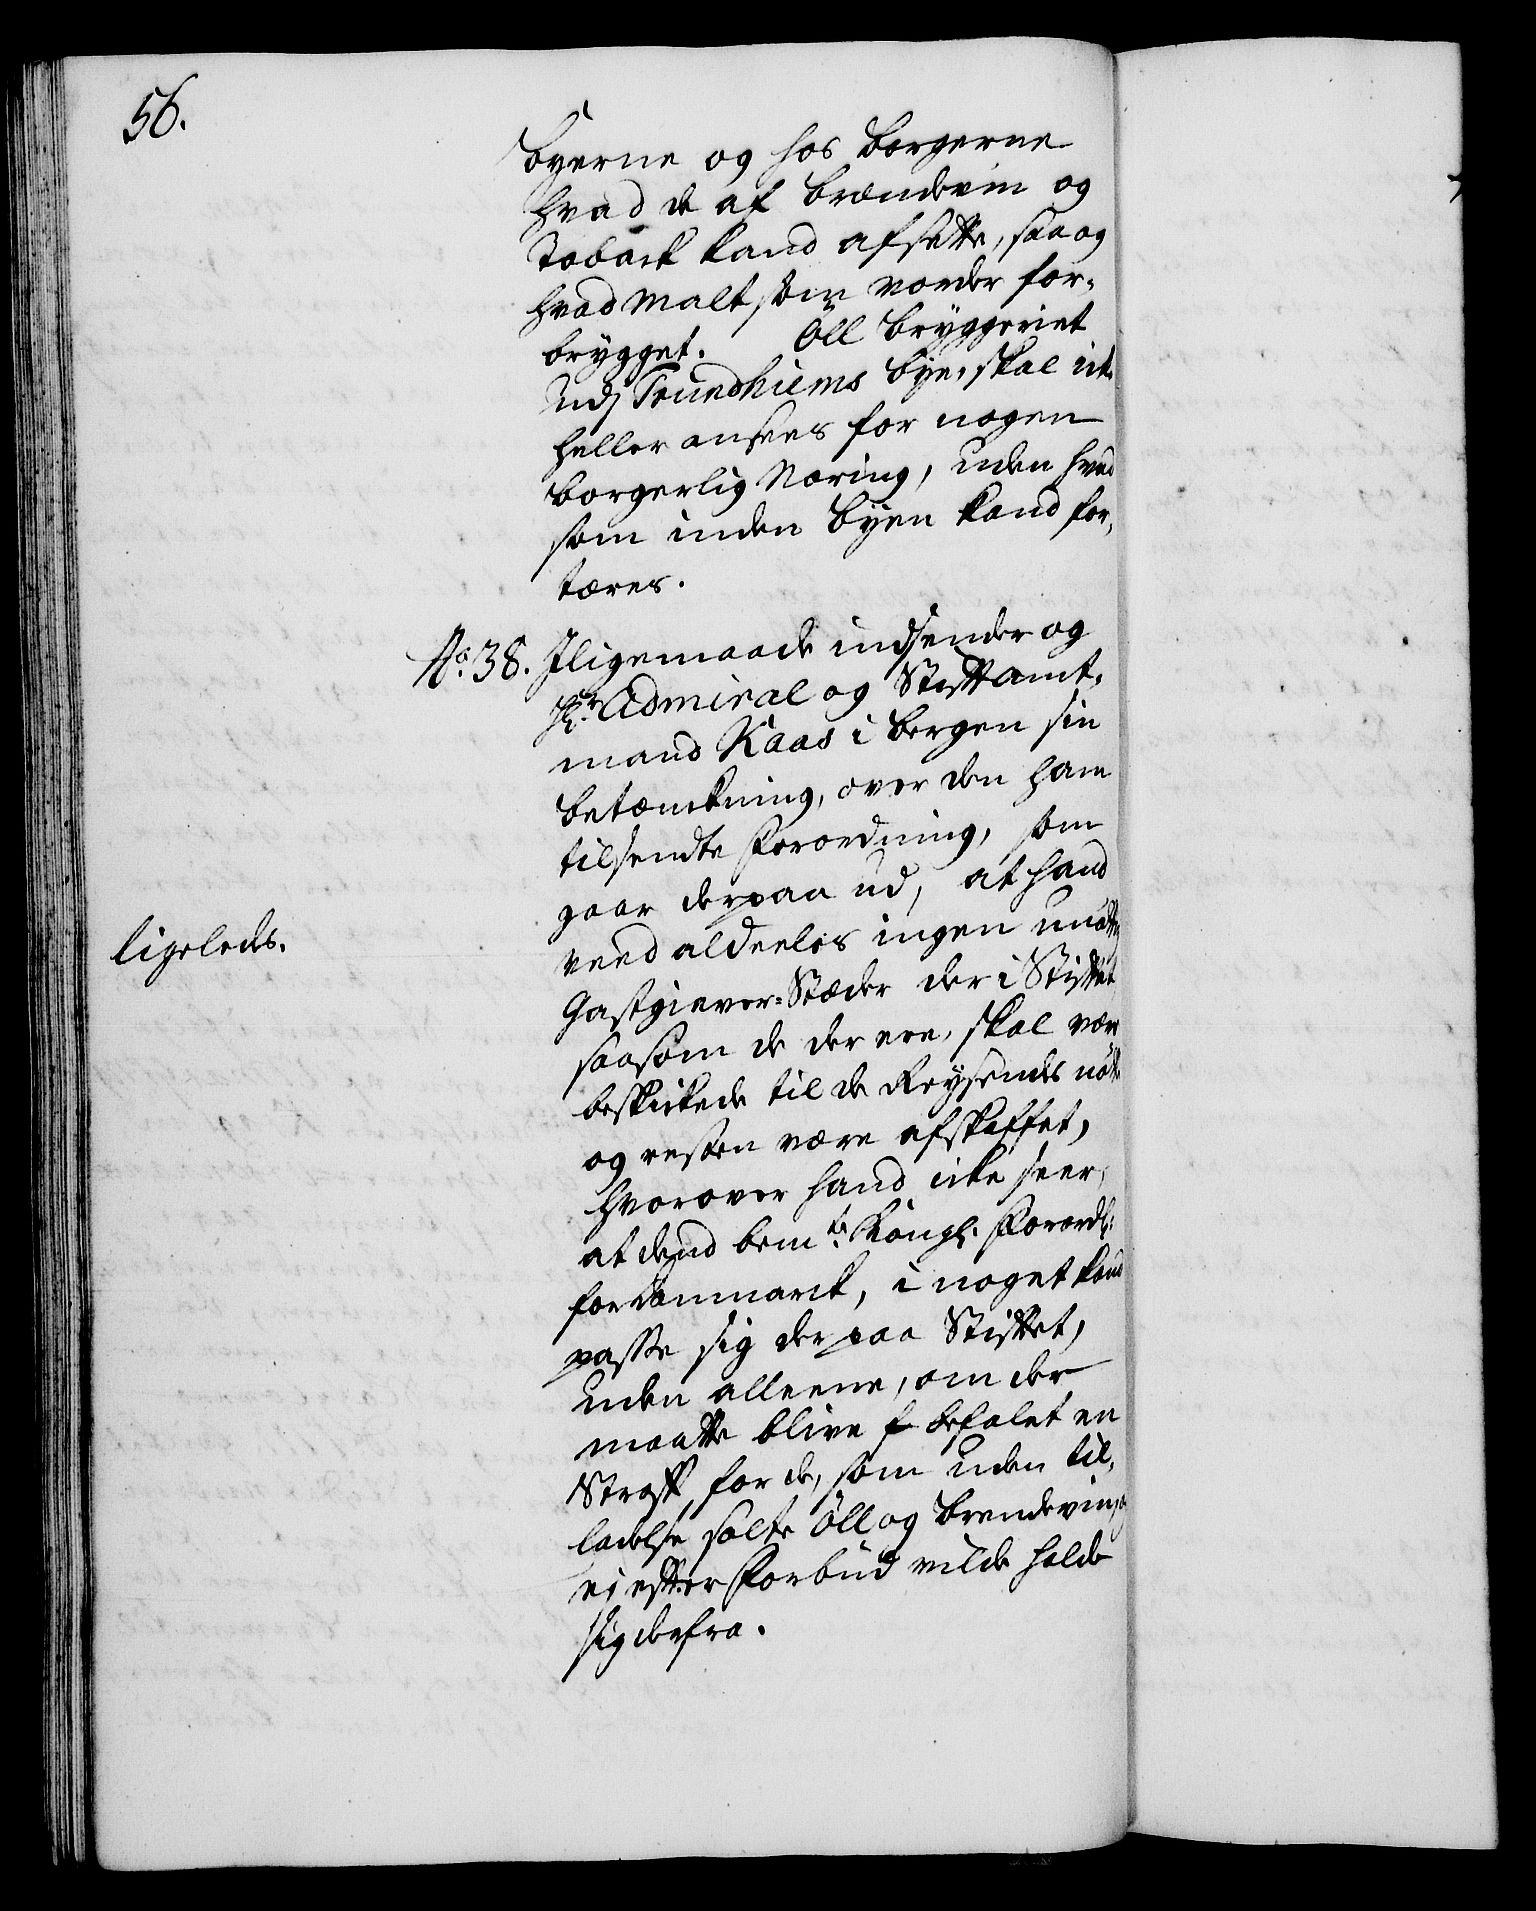 56.
byerne og hos borgerne
hvad de af brændeviin og
Toback kand afsætte, saa og
hvad malt som vorder for-
brygget. Öll bryggeriet
udj Trundhiems bye, skal icke
heller ansees for nogen
borgerlig Næring, uden hvad
som inden byen kand for-
tæres.
No. 38. Jligemaade indsender og
Hr. Admiral og Stiftamt-
mand Kaas i Bergen sin
betænckning, over den ham
tilsendte Forordning, som
gaar derpaa ud, at hand
veed aldeeles ingen unøttig
ligeleds.
Gastgiever-Stæder der i Stiftet
saasom de der ere, skal være
beskickede til de Reysendes nøtte
og resten være afskaffet,
hvorover hand icke seer,
at dend bem.te Kongl. Forord:
for Danmarck, i noget kand
passe sig der paa Stiftet,
uden alleene, om der
maatte blive befalet en
Straff, for de, som uden til-
ladelse solte Öll og brendeviin, og
ej efter Forbud vilde holde
sig derfra.